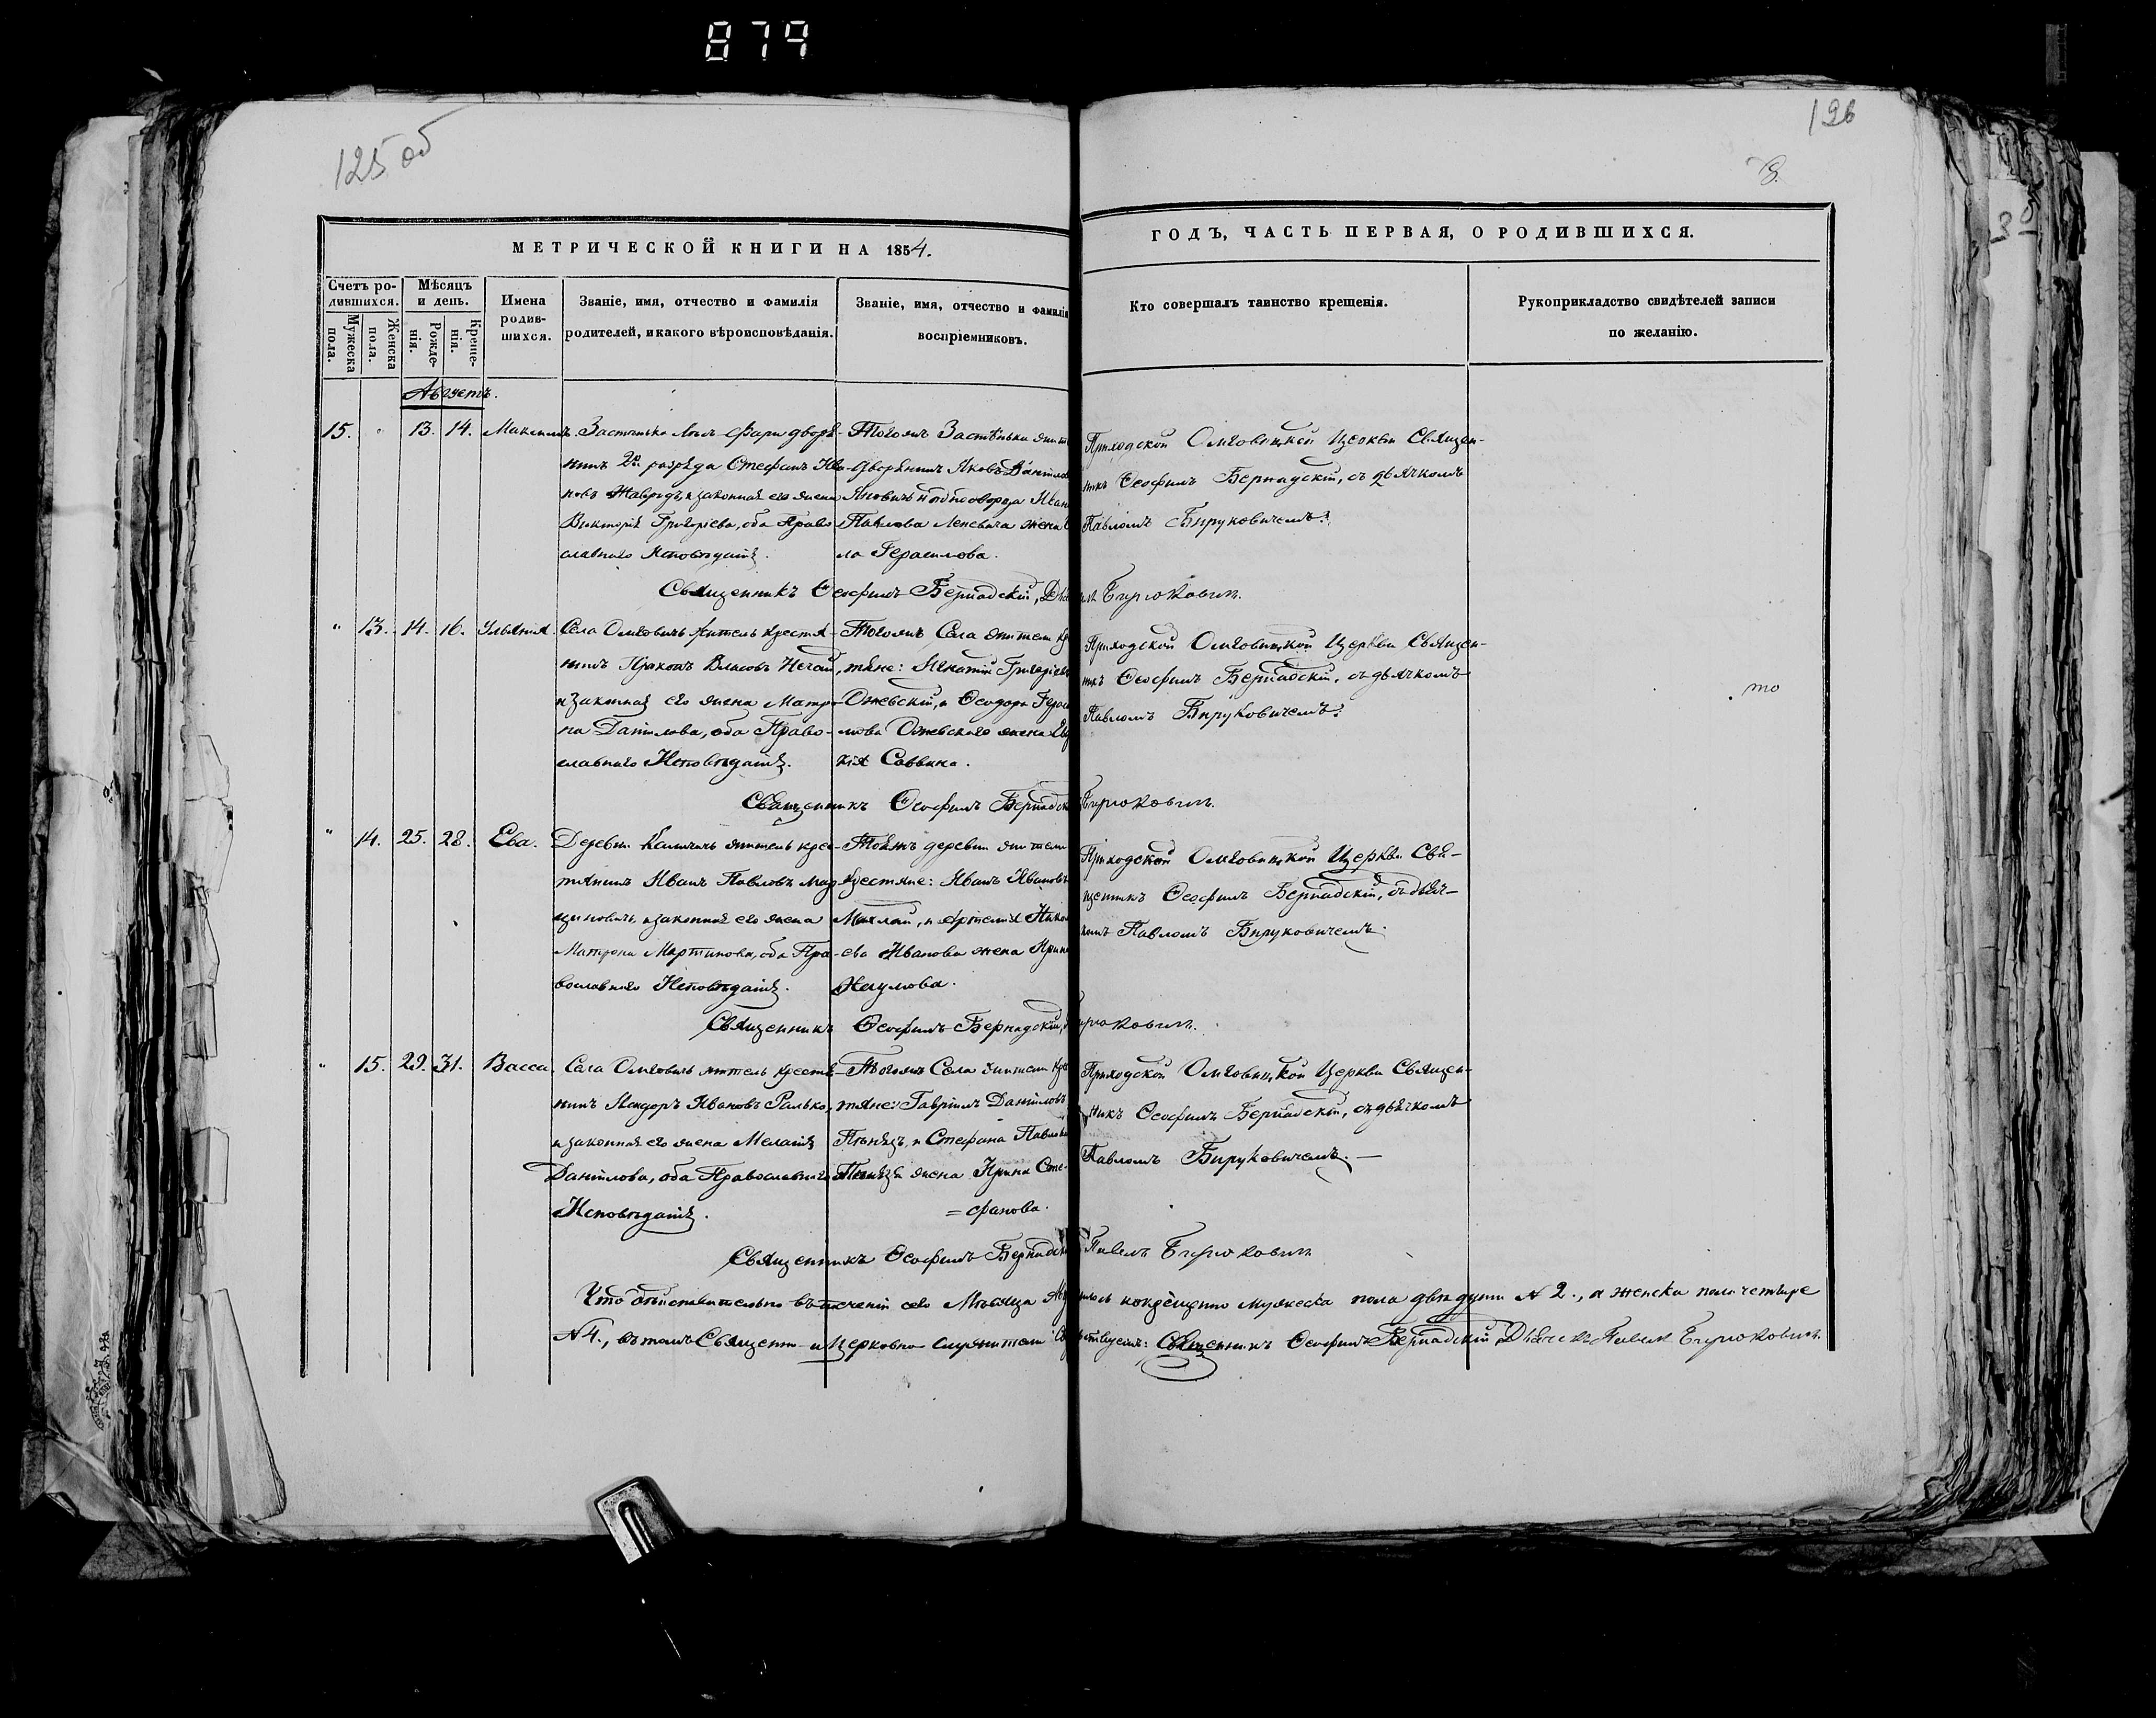 879
125 об
126
8.
МЕТРИЧЕСКОЙ КНИГИ НА 1854.
ГОДЪ, ЧАСТЬ ПЕРВАЯ, О РОДИВШИХСЯ.
Счетъ ро-
дившихся.
Мужеска
пола.
Женска
пола.
Мѣсяцъ
и день.
Рожде-
нія.
Креще-
нія.
Имена
родив-
шихся.
Званіе, имя, отчество и фамилія
родителей, и какого вѣроисповѣданія.
Званіе, имя, отчество и фамилія
воспріемниковъ.
Кто совершалъ таинство крещенія.
Рукоприкладство свидѣтелей записи
по желанію.
Августъ.
15. " 13. 14. Максимъ.
Застѣнка дворя-
нинъ 2го разряда Стефанъ Ива-
новъ и законная его жена
Викторія Григоріева, оба Право-
славнаго Исповѣданія.
Тогожъ Застѣнка
Дворянинъ Яковъ
Иван
Павлова жена
ла Герасимова.
Приходской Омговицкой Церкви Священ-
никъ Ѳеофилъ Бернадскій, съ дьячкомъ
Павломъ Бируковичемъ.
Священникъ Ѳеофилъ Бернадскій, Бирюковичъ.
" 13. 14. 16. Ульяна
Села Омговичъ житель крестья-
нинъ Власовъ Нечай,
и законная его жена Матро-
на Данилова, оба Право-
славнаго Исповѣданія.
Тогожъ Села жители кр
тяне: Игнатій Григоріевъ
Олжевскій, и Ѳеодора Герас
мова жена Ев
кія Саввина.
Приходской Омговицкой Церкви Священ-
никъ Ѳеофилъ Бернадскій, съ дьячкомъ
Павломъ Бируковичемъ.
то
Священникъ Ѳеофилъ Бернадск Бирюковичъ.
" 14. 25. 28. Ева.
Деревни житель крес-
тянинъ Иванъ Павловъ Мар-
циновичъ, и законная его жена
Матрона Мартинова, оба Пра-
вославнаго Исповѣданія.
Тойжъ деревни жители
крестяне: Иванъ Ивановъ
и
Иванова жена Ирин
Наумова.
Приходской Омговицкой Церкви Свя-
щенникъ Ѳеофилъ Бернадскій, съ дьяч-
комъ Павломъ Бируковичемъ.
Священникъ Ѳеофилъ Бернадскій, ирюковичъ.
" 15. 29. 31. Васса
Села Омговичъ житель крестя-
нинъ Ивановъ Ралько,
и законная его жена Меланія
Данилова, оба Православнаго
Исповѣданія.
Тогожъ Села жители кре
тяне: Гавріилъ Даниловъ
и Стефана Павлова
жена Ирина Сте-
=фанова.
Приходской Омговицкой Церкви Священ-
никъ Ѳеофилъ Бернадскій, съ дьячкомъ
Павломъ Бируковичемъ.
Священникъ Ѳеофилъ Бернадск Павелъ Бирюковичъ
Что дѣйствительно въ теченіи сего Мѣсяца мужеска пола двѣ души № 2., а женска пола четыре
№ 4., въ томъ Священно и Церковно служители Священникъ Ѳеофилъ Бернадскій Дьячекъ Павелъ Бирюковичъ